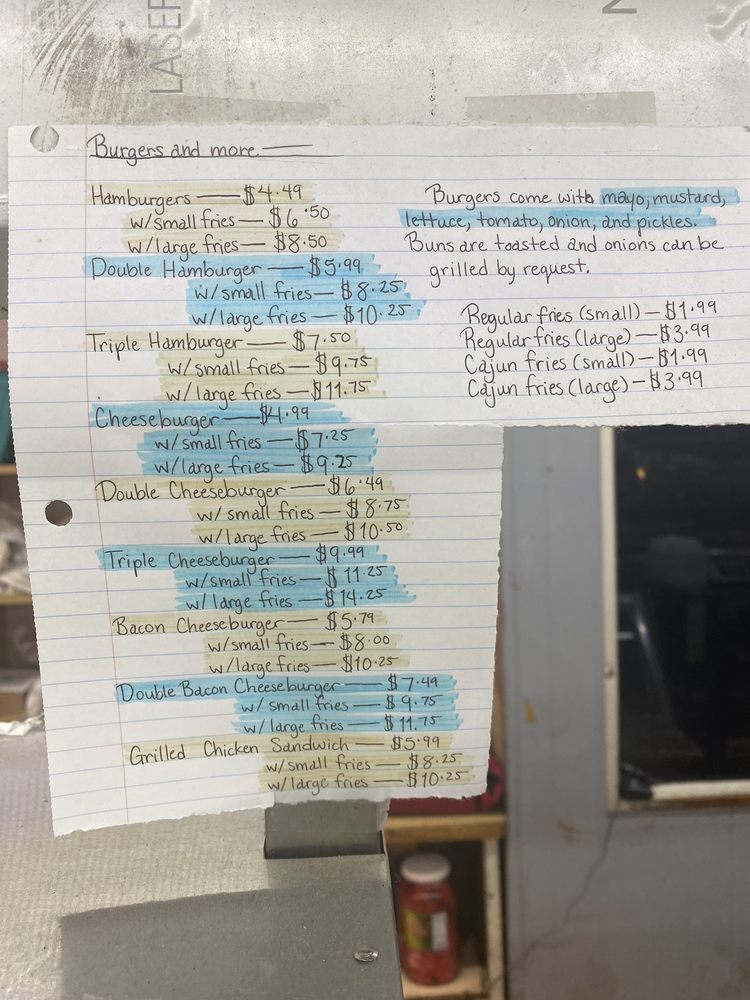 LASER
N
Burgers and more.
Hamburgers — $4.49
w/small fries — $6.50
w/large fries — $8.50
Double Hamburger — $5.99
w/small fries — $8.25
w/large fries — $10.25
Triple Hamburger — $7.50
w/small fries — $9.75
w/large fries — $11.75
Cheeseburger — $4.99
w/small fries — $7.25
w/large fries — $9.25
Double Cheeseburger — $6.49
w/small fries — $8.75
w/large fries — $10.50
Triple Cheeseburger — $9.99
w/small fries — $11.25
w/large fries — $14.25
Bacon Cheeseburger — $5.79
w/small fries — $8.00
w/large fries — $10.25
Double Bacon Cheeseburger — $7.49
w/small fries — $9.75
w/large fries — $11.75
Grilled Chicken Sandwich — $5.99
w/small fries — $8.25
w/large fries — $10.25
Burgers come with mayo, mustard,
lettuce, tomato, onion, and pickles.
Buns are toasted and onions can be
grilled by request.
Regular fries (small) — $1.99
Regular fries (large) — $3.99
Cajun fries (small) — $1.99
Cajun fries (large) — $3.99